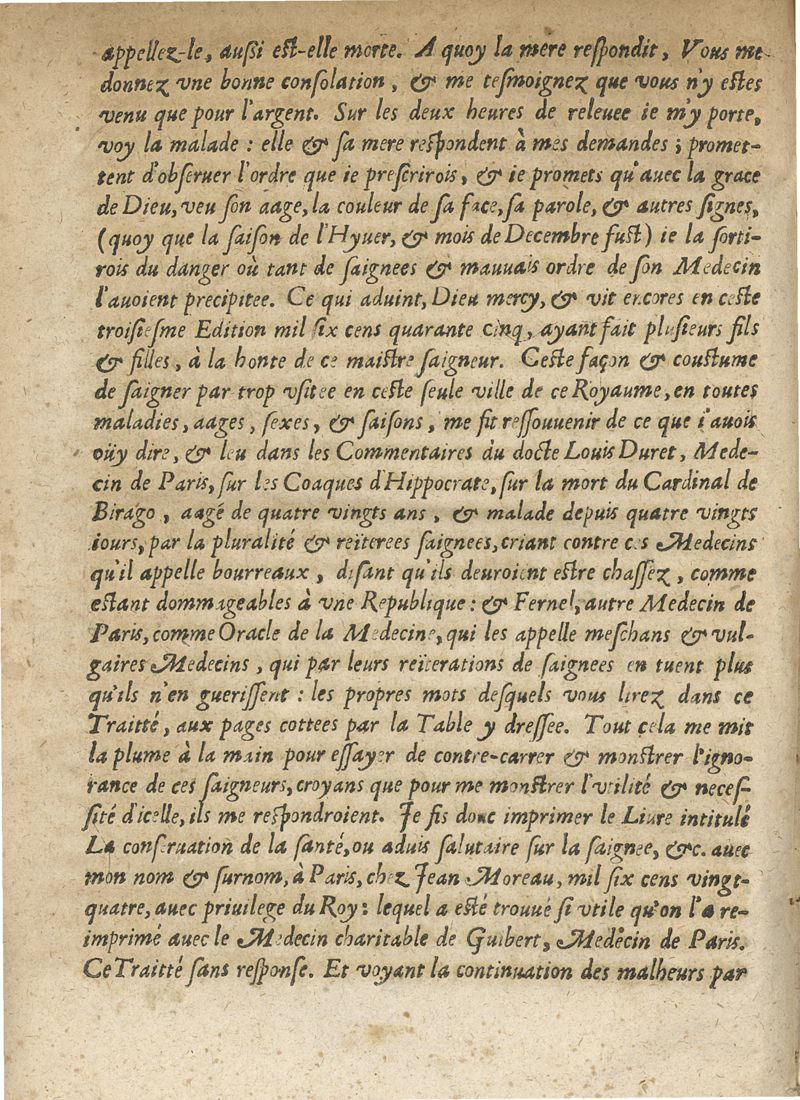 appellez-le, aussi est-elle morte. A quoy la mere respondit, Vous me
donnez vne bonne consolation, & me tesmoignez que vous n'y estes
venu que pour l'argent. Sur les deux heures de releuee ie m'y porte,
voy la malade : elle & sa mere respondent à mes demandes ; promet-
tent d'obseruer l'ordre que ie prescrirois, & ie promets qu'auec la grace
de Dieu, veu son aage, la couleur de sa face, sa parole, & autres signes,
(quoy que la saison de l'Hyuer, & mois de Decembre fust) ie la sorti-
rois du danger où tant de saignees & mauuais ordre de son Medecin
l'auoient precipitee. Ce qui aduint, Dieu mercy, & vit encores en ceste
troisiesme Edition mil six cens quarante cinq, ayant fait plusieurs fils
& filles, à la honte de ce maistre saigneur. Ceste façon & coustume
de saigner par trop vsitee en ceste seule ville de ce Royaume, en toutes
maladies, aages, sexes, & saisons, me fit ressouuenir de ce que i'auois
oüy dire, & leu dans les Commentaires du docte Louis Duret, Mede-
cin de Paris, sur les Coaques d'Hippocrate, sur la mort du Cardinal de
Birago, aagé de quatre vingts ans, & malade depuis quatre vingts
iours, par la pluralité & reïterees saignees, criant contre ces Medecins
qu'il appelle bourreaux, disant qu'ils deuroient estre chassez, comme
estant dommageables à vne Republique : & Fernel, autre Medecin de
Paris, comme Oracle de la Medecine, qui les appelle meschans & vul-
gaires Medecins, qui par leurs reïterations de saignees en tuent plus
qu'ils n'en guerissent : les propres mots desquels vous lirez dans ce
Traitté, aux pages cottees par la Table y dressee. Tout cela me mit
la plume à la main pour essayer de contre-carrer & monstrer l'igno-
rance de ces saigneurs, croyans que pour me monstrer l'vtilité & neces-
sité d'icelle, ils me respondroient. Je fis donc imprimer le Liure intitulé
La conseruation de la santé, ou aduis salutaire sur la saignee, &c. auec
mon nom & surnom, à Paris, chez Jean Moreau, mil six cens vingt-
quatre, auec priuilege du Roy : lequel a esté trouué si vtile qu'on l'a re-
imprimé auec le Medecin charitable de Guibert, Medecin de Paris.
Ce Traitté sans response. Et voyant la continuation des malheurs par